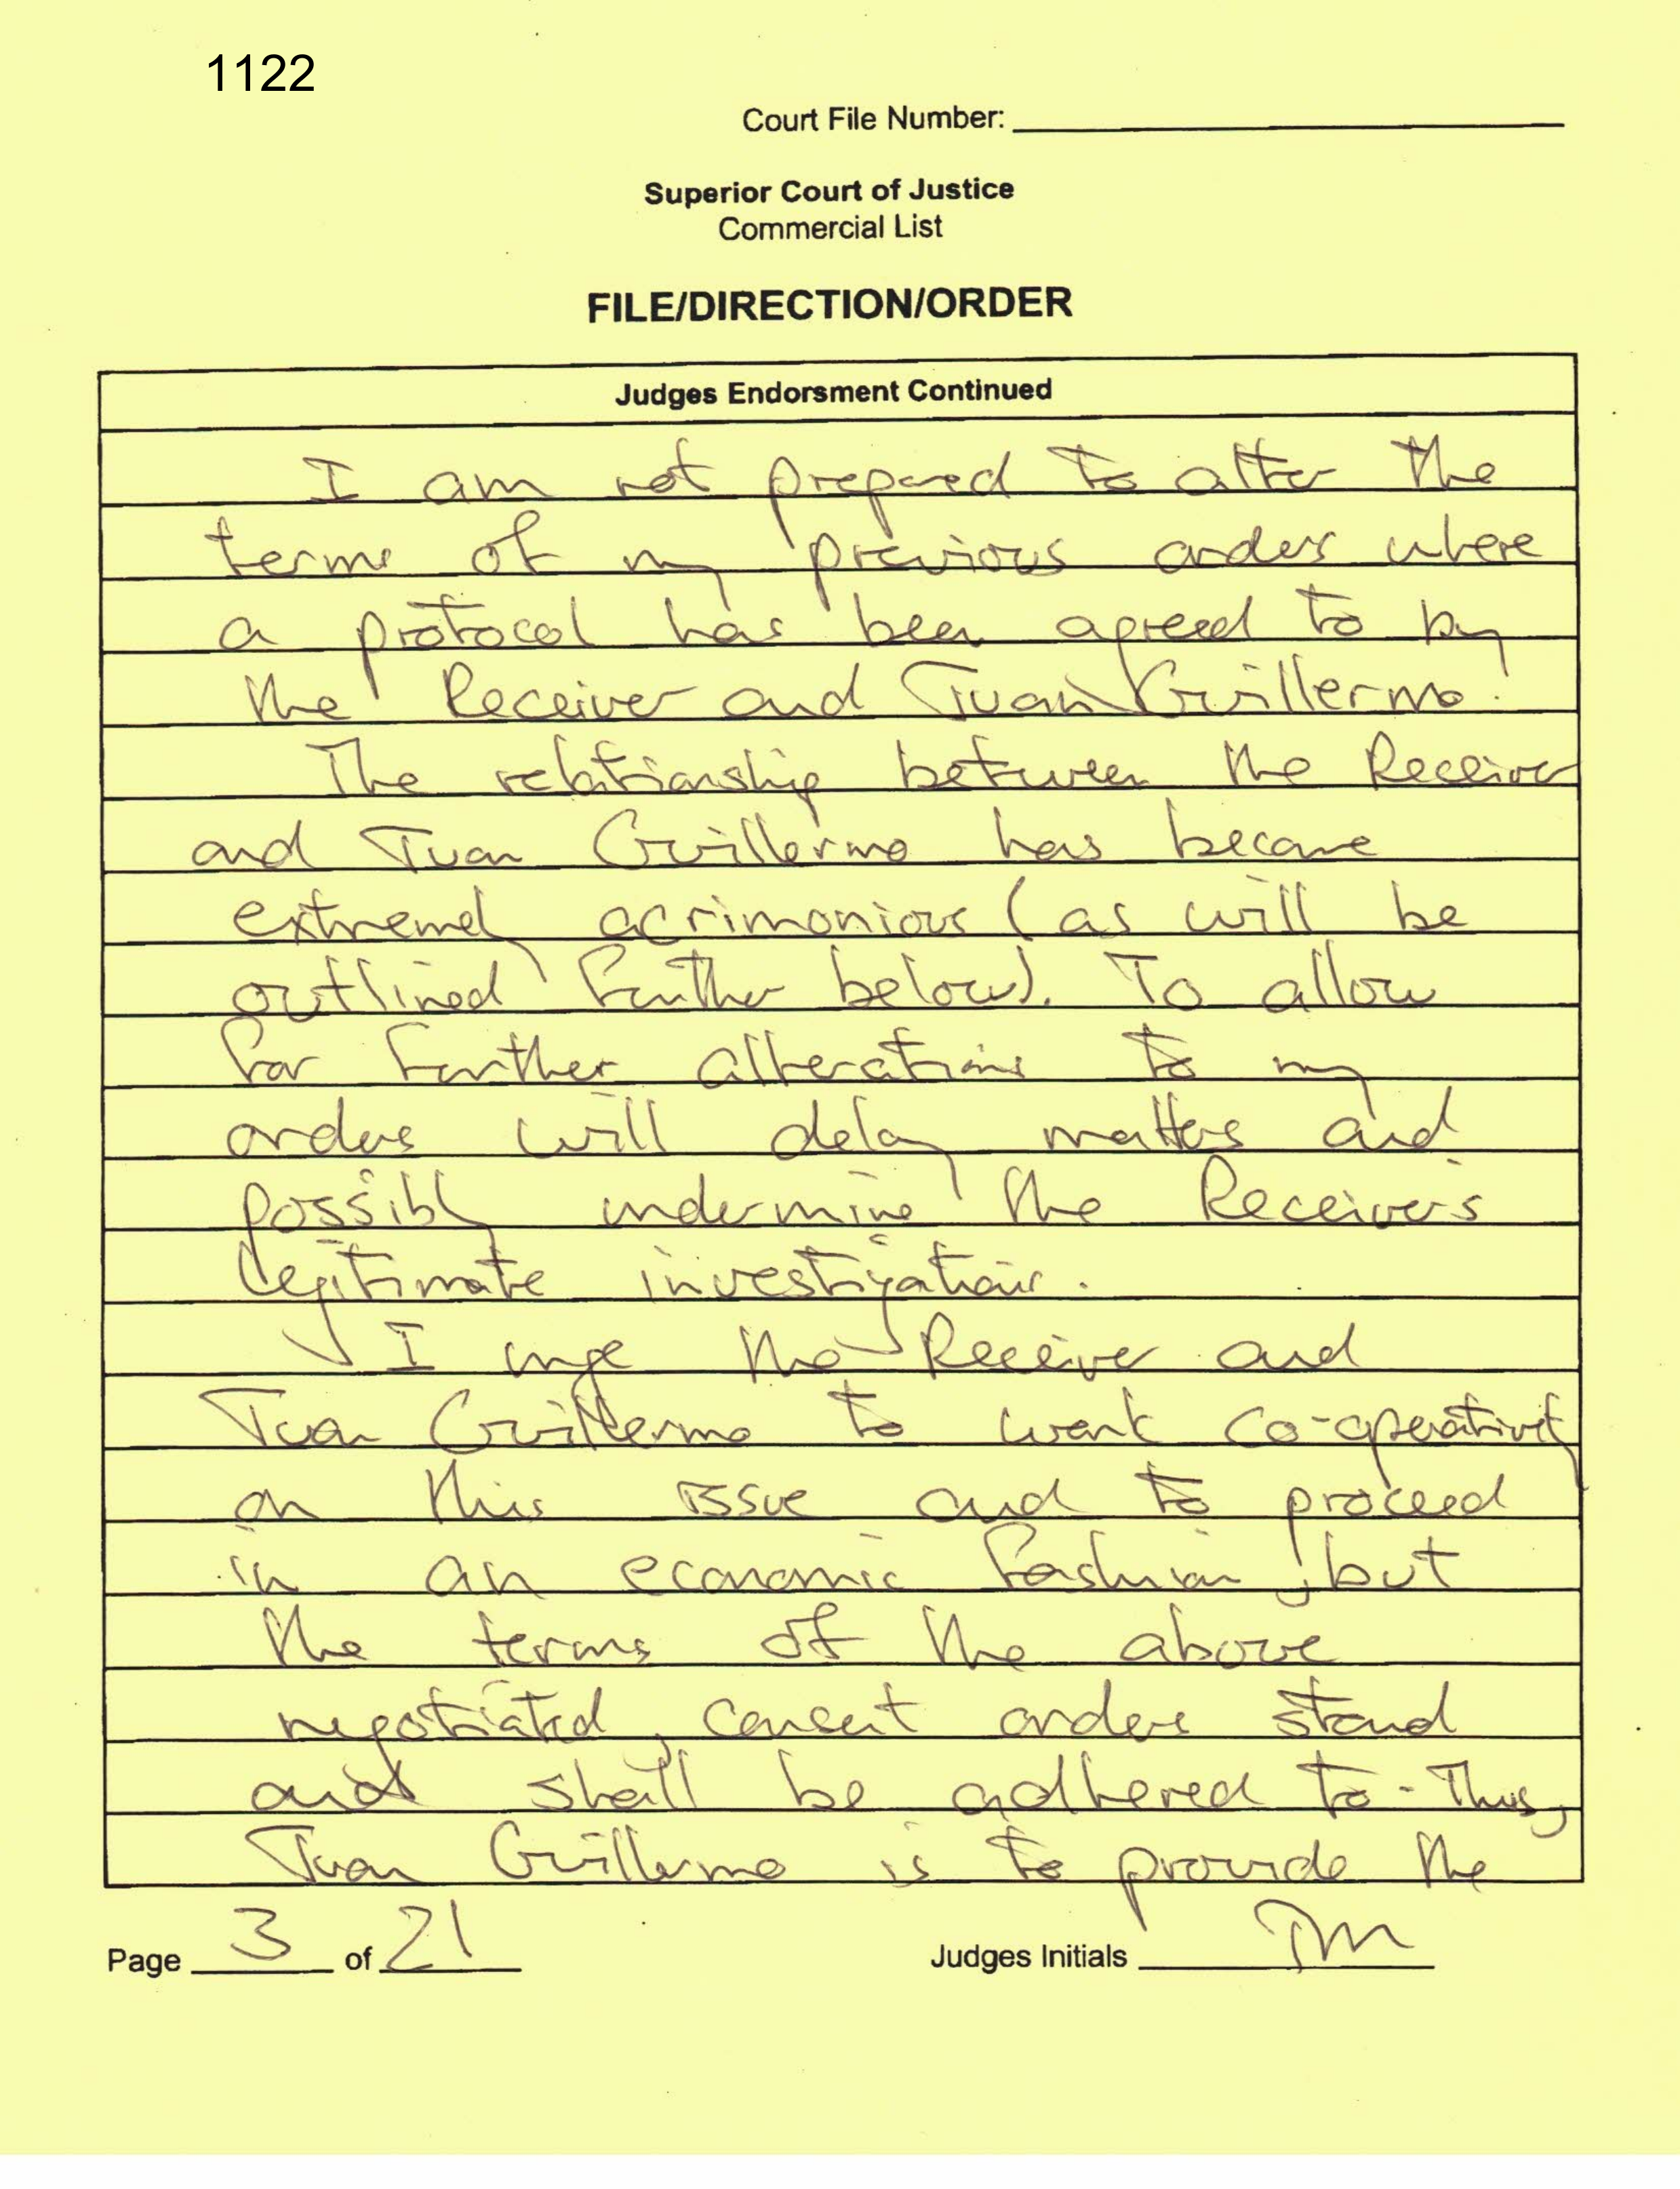 1122
Court File Number:
Superior Court of Justice
Commercial List
FILE/DIRECTION/ORDER
Judges Endorsment Continued
I am not prepared to alter the
terms of my previous orders where
a protocol has been agreed to by
the Receiver and Juan Guillermo.
The relationship between the Receiver
and Juan Guillermo has become
extremely acrimonious (as will be
outlined further below). To allow
for further alterations to my
orders will delay matters and
possibly undermine the Receiver's
legitimate investigations.
I urge the Receiver and
Juan Guillermo to work co-operatively
on this issue and to proceed
in an economic fashion, but
the terms of the above
negotiated, consent orders stand
and shall be adhered to. Thus,
Juan Guillermo is to provide the
Page 3 of 21
Judges Initials TM